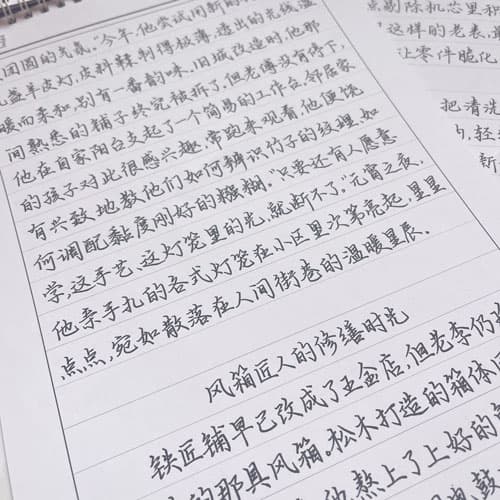 团圆的气氛。"今年，他尝试用新的
盏羊皮灯，皮料鞣制得极薄，透出的光极温
暖而柔和，别有一番韵味。旧城改造时，他那
间熟悉的铺子终究被拆了，但老傅没有停下，
他在自家阳台支起了一个简易的工作台。邻居家
的孩子对此很感兴趣，常跑来观看，他便饶
有兴致地教他们如何辨识竹子的纹理，如
何调配黏度刚好的糨糊。"只要还有人愿意
学，这手艺，这灯笼里的光，就断不了。"元宵之夜，
他亲手扎的各式灯笼在小区里次第亮起，星星
点点，宛如散落在人间街巷的温暖星辰。
风箱匠人的修缮时光
铁匠铺早已改成了五金店，但老李仍
的那具风箱。松木打造的箱体
他熬上了上好的
鼓
剔除机芯里积
这样的老表，
让零件脆化
把清洗
轻
新